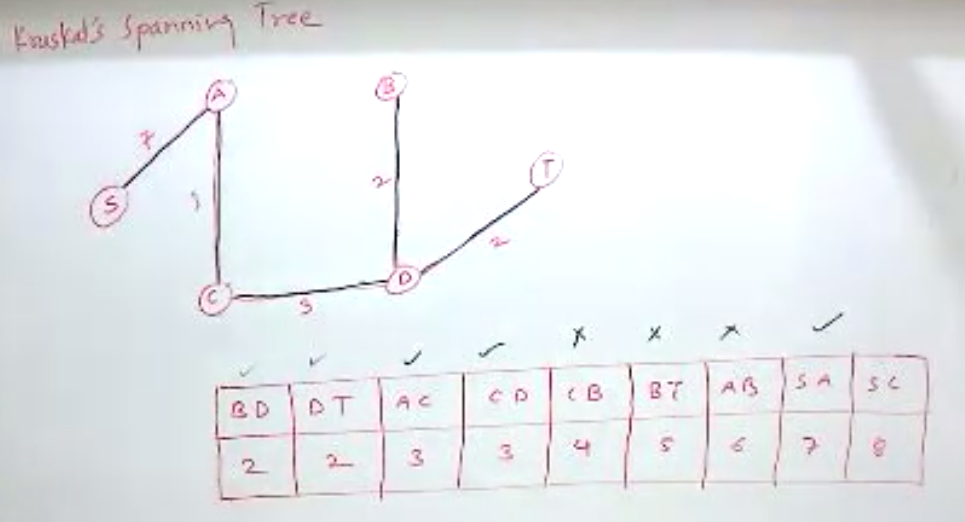 Kruskal's Spanning Tree
A
B
7
T
S
2
3
2
D
C
3
✓ ✓ ✓ ✓ ✗ ✗ ✗ ✓
BD DT AC CD CB BT AB SA SC
2 2 3 3 4 5 6 7 8